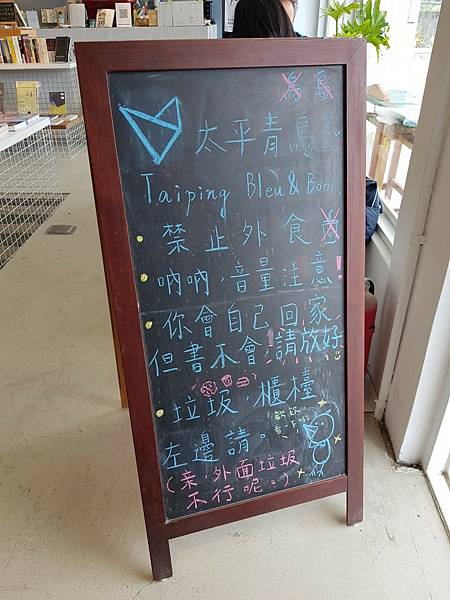 太平青鳥
Taiping Bleu & Book
禁止外食
吶吶，音量注意！
你會自己回家
但書不會！請放好
垃圾，櫃檯
左邊請。
(亲，外面垃圾
不行呢。)